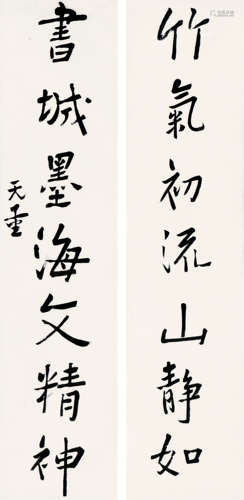 竹氣初流山靜如
書城墨海文精神
天重